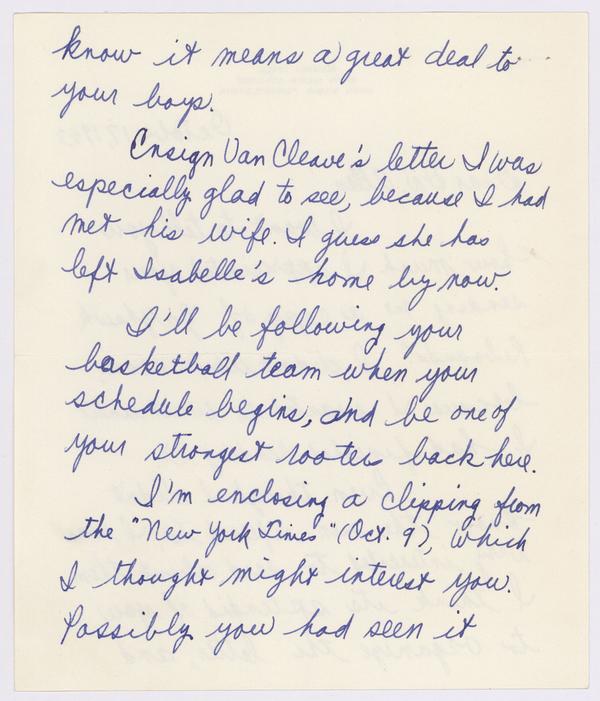 know it means a great deal to
your boys.
Ensign Van Cleave's letter I was
especially glad to see, because I had
met his wife. I guess she has
left Isabelle's home by now.
I'll be following your
basketball team when your
schedule begins, and be one of
your strongest rooters back here.
I'm enclosing a clipping from
the "New York Times" (Oct. 9), which
I thought might interest you.
Possibly you had seen it